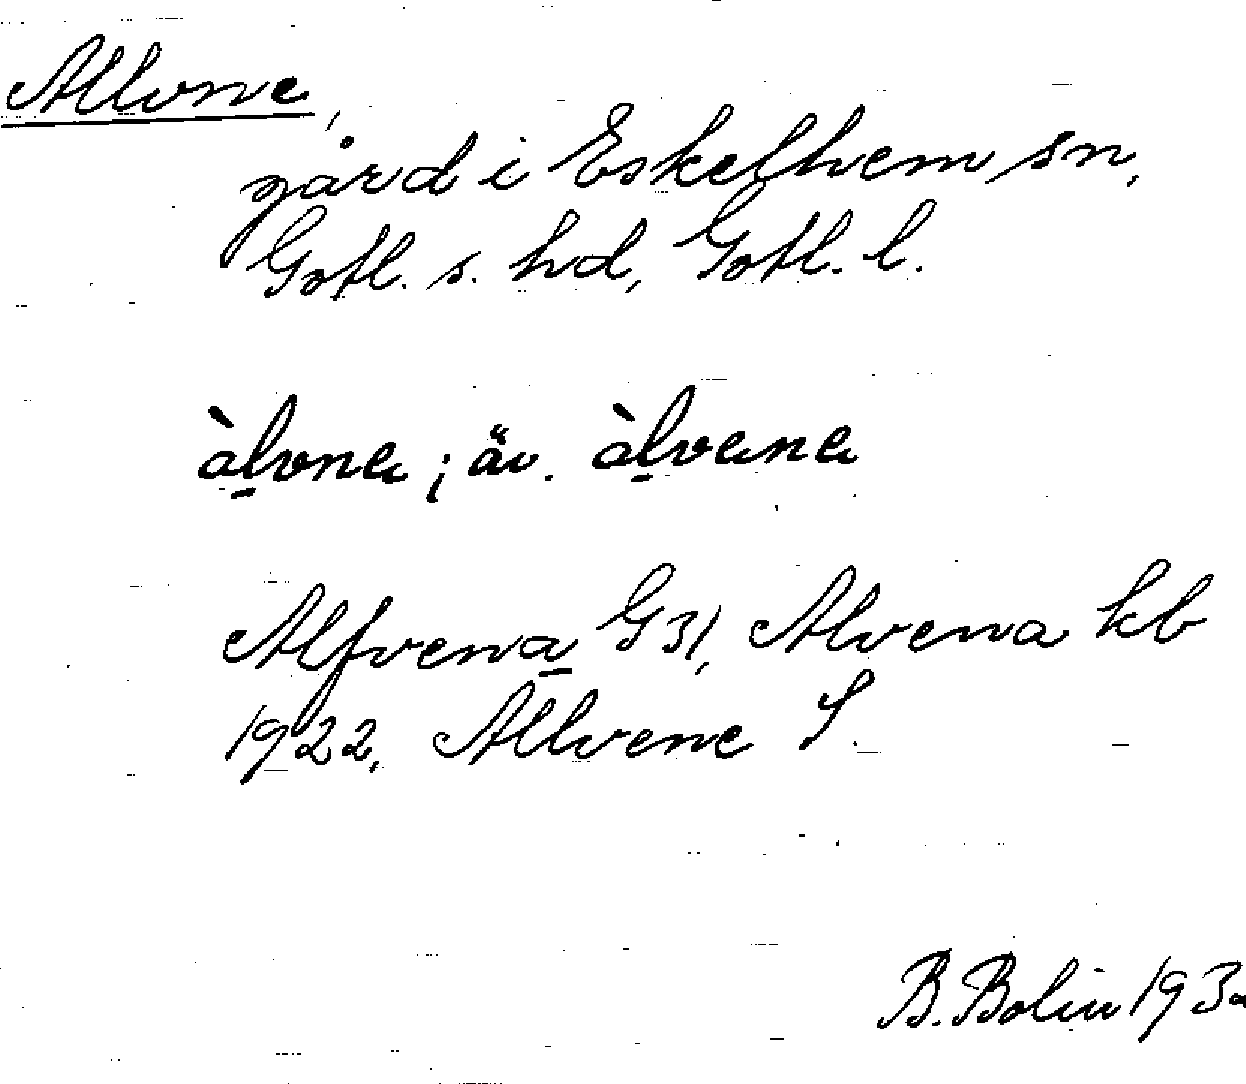 Allvne,
gård i Eskelhem sn,
Gotl. s. hd, Gotl. l.
àlvna; äv. àlvana
Alfvena G 31, Alvena kb
1922, Allvene S.
B. Bolin 193